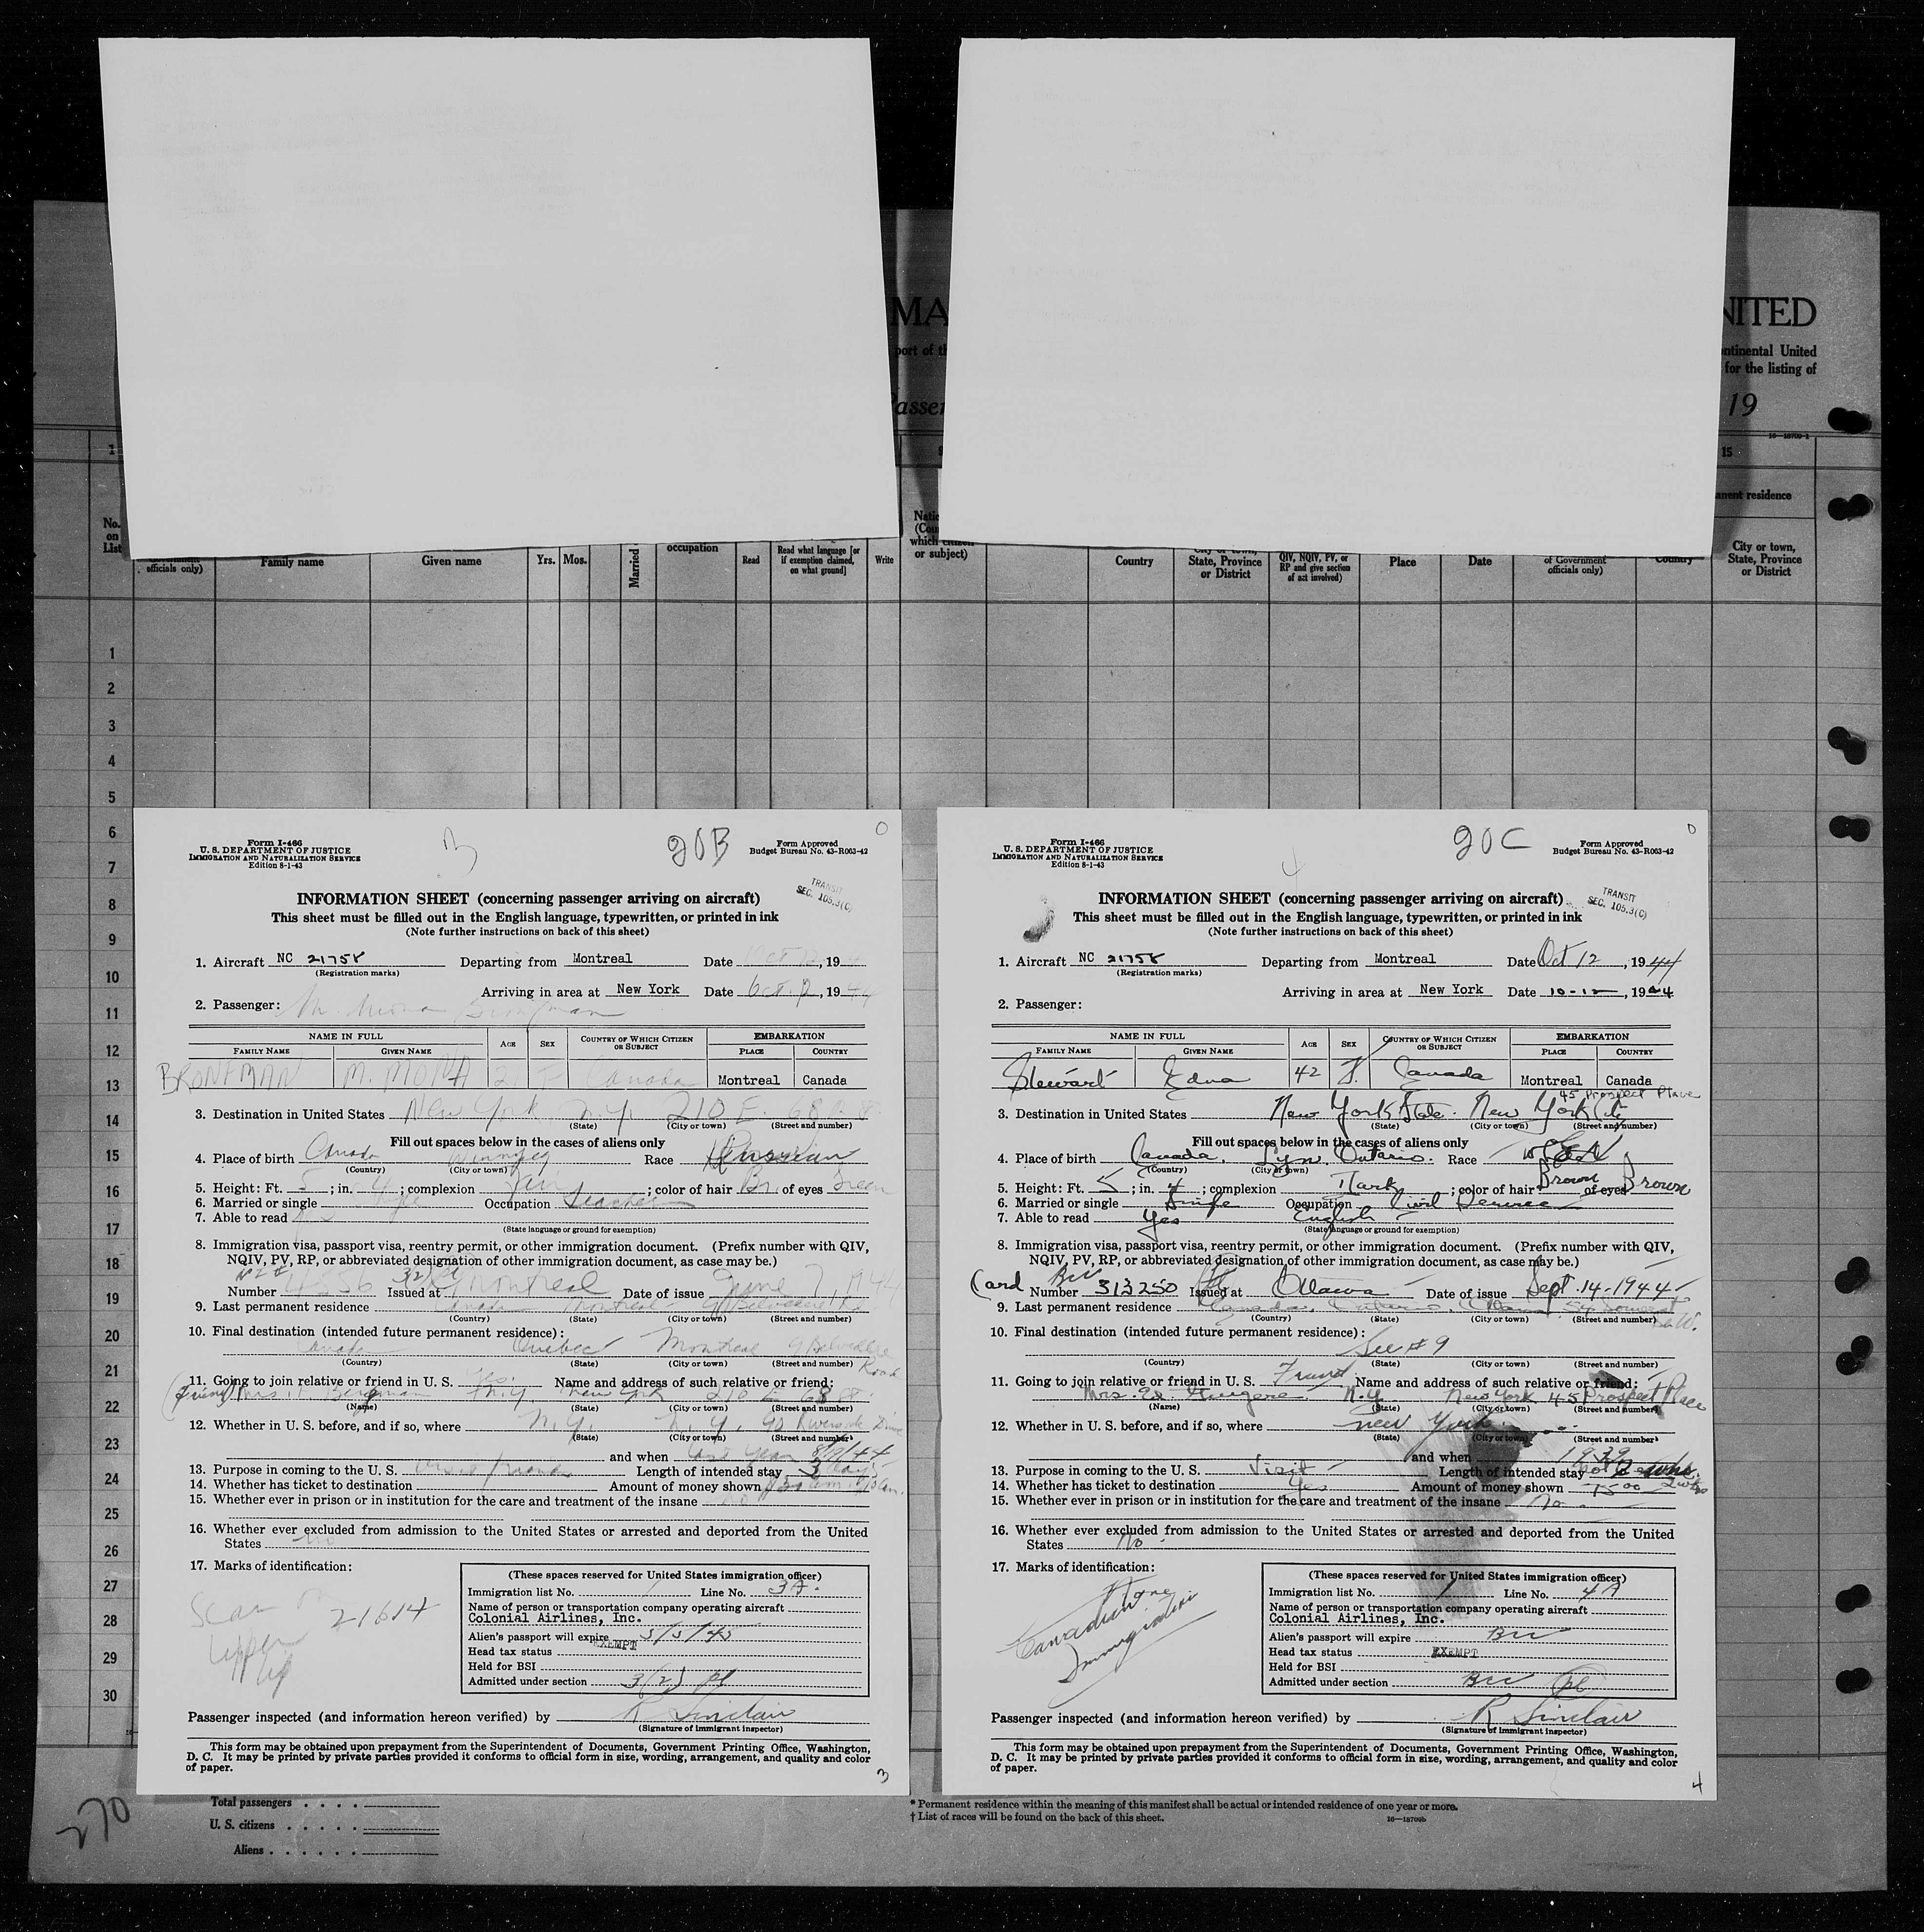 MA
NITED
port of th
ntinental United
for the listing of
Passen
19
16—18709-1
1
15
anent residence
No. on List
officials only)
Family name
Given name
Yrs.
Mos.
Married
occupation
Read
Read what language [or if exemption claimed, on what ground]
Write
Natio
(Cou
which citizen
or subject)
Country
City or town, State, Province or District
QIV, NQIV, PV, or RP and give section of act involved)
Place
Date
of Government officials only)
Country
City or town, State, Province or District
1
2
3
4
5
6
7
8
9
10
11
12
13
14
15
16
17
18
19
20
21
22
23
24
25
26
27
28
29
30
Form I-466
U. S. DEPARTMENT OF JUSTICE
IMMIGRATION AND NATURALIZATION SERVICE
Edition 8-1-43
20B
Form Approved
Budget Bureau No. 43-R063-42
TRANSIT
SEC. 105.3(C)
INFORMATION SHEET (concerning passenger arriving on aircraft)
This sheet must be filled out in the English language, typewritten, or printed in ink
(Note further instructions on back of this sheet)
1. Aircraft NC 21758 Departing from Montreal Date Oct 12, 19
(Registration marks)
Arriving in area at New York Date Oct. 12, 1944
2. Passenger: M. Mona Bronfman
NAME IN FULL
AGE
SEX
COUNTRY OF WHICH CITIZEN OR SUBJECT
EMBARKATION
FAMILY NAME
GIVEN NAME
PLACE
COUNTRY
BRONFMAN M. MONA F Canada Montreal Canada
3. Destination in United States New York N.Y. 210 E. 68
(State) (City or town) (Street and number)
Fill out spaces below in the cases of aliens only
4. Place of birth Canada Winnipeg Race Russian
(Country) (City or town)
5. Height: Ft. 5; in. 4; complexion Fair; color of hair Br. of eyes Green
6. Married or single Occupation Teacher
7. Able to read
(State language or ground for exemption)
8. Immigration visa, passport visa, reentry permit, or other immigration document. (Prefix number with QIV,
NQIV, PV, RP, or abbreviated designation of other immigration document, as case may be.)
Number Issued at Montreal Date of issue June 7, 1944
9. Last permanent residence Canada Montreal 9 Belvedere Rd.
(Country) (State) (City or town) (Street and number)
10. Final destination (intended future permanent residence):
Canada Quebec Montreal 9 Belvedere Road
(Country) (State) (City or town) (Street and number)
11. Going to join relative or friend in U. S. Yes. Name and address of such relative or friend:
(friend) Mrs. H. Bergman N.Y. New York 210 E 68 St.
(Name) (State) (City or town) (Street and number)
12. Whether in U. S. before, and if so, where N.Y. N.Y. 90 Riverside Drive
(State) (City or town) (Street and number)
and when last year
13. Purpose in coming to the U. S. visit friends Length of intended stay 3 days
14. Whether has ticket to destination Amount of money shown
15. Whether ever in prison or in institution for the care and treatment of the insane no
16. Whether ever excluded from admission to the United States or arrested and deported from the United
States no
17. Marks of identification:
Scar on upper lip
21614
(These spaces reserved for United States immigration officer)
Immigration list No. 1 Line No. 3A
Name of person or transportation company operating aircraft
Colonial Airlines, Inc.
Alien's passport will expire 5/5/45
Head tax status EXEMPT
Held for BSI
Admitted under section 3(2) pl
Passenger inspected (and information hereon verified) by R Sinclair
(Signature of immigrant inspector)
This form may be obtained upon prepayment from the Superintendent of Documents, Government Printing Office, Washington,
D. C. It may be printed by private parties provided it conforms to official form in size, wording, arrangement, and quality and color
of paper.
3
Form I-466
U. S. DEPARTMENT OF JUSTICE
IMMIGRATION AND NATURALIZATION SERVICE
Edition 8-1-43
4
20C
Form Approved
Budget Bureau No. 43-R063-42
TRANSIT
SEC. 105.3(C)
INFORMATION SHEET (concerning passenger arriving on aircraft)
This sheet must be filled out in the English language, typewritten, or printed in ink
(Note further instructions on back of this sheet)
1. Aircraft NC 21758 Departing from Montreal Date Oct 12, 1944
(Registration marks)
Arriving in area at New York Date 10-12, 1944
2. Passenger:
NAME IN FULL
AGE
SEX
COUNTRY OF WHICH CITIZEN OR SUBJECT
EMBARKATION
FAMILY NAME
GIVEN NAME
PLACE
COUNTRY
Stewart Edna 42 F. Canada Montreal Canada
45 Prospect Place
3. Destination in United States New York State. New York City
(State) (City or town) (Street and number)
Fill out spaces below in the cases of aliens only
4. Place of birth Canada, Lyn, Ontario. Race
(Country) (City or town)
5. Height: Ft. 5; in. 4; complexion Dark; color of hair Brown of eyes Brown
6. Married or single Single Occupation Civil Service
7. Able to read Yes English
(State language or ground for exemption)
8. Immigration visa, passport visa, reentry permit, or other immigration document. (Prefix number with QIV,
NQIV, PV, RP, or abbreviated designation of other immigration document, as case may be.)
Card Number 313250 Issued at Ottawa Date of issue Sept. 14-1944
9. Last permanent residence Canada, Ontario, Ottawa, 54 Somerset St. W.
(Country) (State) (City or town) (Street and number)
10. Final destination (intended future permanent residence):
See #9
(Country) (State) (City or town) (Street and number)
11. Going to join relative or friend in U. S. Friend Name and address of such relative or friend:
Mrs. Ed. N.Y. New York 45 Prospect Place
(Name) (State) (City or town) (Street and number)
12. Whether in U. S. before, and if so, where New York
(State) (City or town) (Street and number)
and when 1939
13. Purpose in coming to the U. S. Visit Length of intended stay 2 wks.
14. Whether has ticket to destination Yes Amount of money shown 75 00
15. Whether ever in prison or in institution for the care and treatment of the insane No
16. Whether ever excluded from admission to the United States or arrested and deported from the United
States No
17. Marks of identification:
None
Canadian Immigration
(These spaces reserved for United States immigration officer)
Immigration list No. 1 Line No. 4A
Name of person or transportation company operating aircraft
Colonial Airlines, Inc.
Alien's passport will expire
Head tax status EXEMPT
Held for BSI
Admitted under section
Passenger inspected (and information hereon verified) by R Sinclair
(Signature of immigrant inspector)
This form may be obtained upon prepayment from the Superintendent of Documents, Government Printing Office, Washington,
D. C. It may be printed by private parties provided it conforms to official form in size, wording, arrangement, and quality and color
of paper.
4
270
Total passengers
U. S. citizens
Aliens
* Permanent residence within the meaning of this manifest shall be actual or intended residence of one year or more.
† List of races will be found on the back of this sheet.
16—18709b